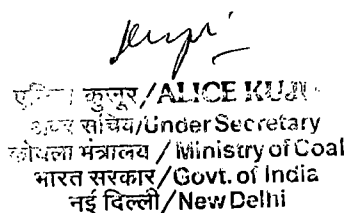 कुजूर/ALICE
सचिव/Under Secretary
कोयला मंत्रालय / Ministry of Coal
भारत सरकार/Govt. of India
नई दिल्ली/New Delhi